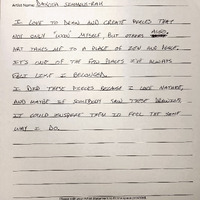 Artist Name: Dakota
I LOVE TO DRAW AND CREATE WORLDS THAT
NOT ONLY "WOW" MYSELF BUT OTHERS ALSO.
ART TAKES ME TO A PLACE OF ZEN AND PEACE.
IT'S ONE OF THE FEW PLACES I'VE ALWAYS
FELT LIKE I BELONGED.
I DID THESE PIECES BECAUSE I LOVE NATURE,
AND MAYBE IF SOMEBODY SAW THESE DRAWINGS
IT COULD INSPIRE THEM TO FEEL THE SAME
WAY I DO.